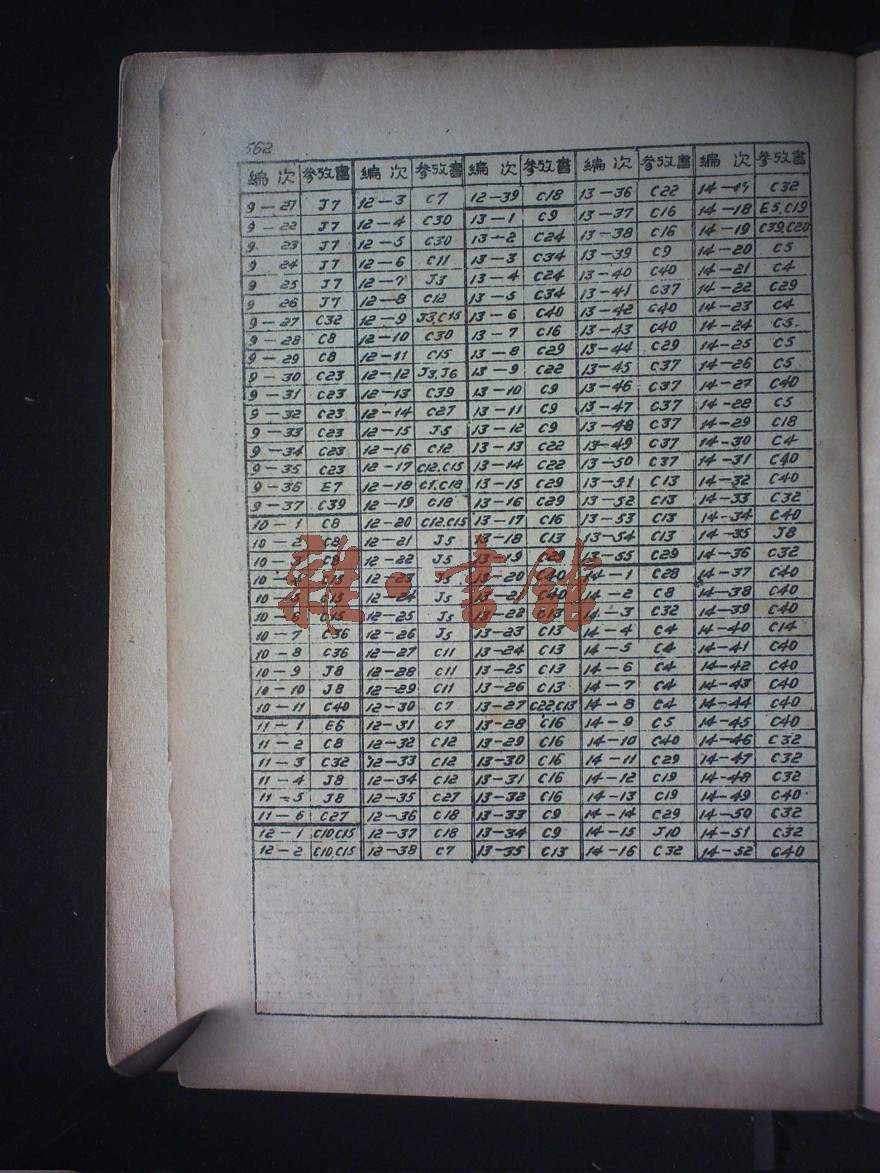 562
編次 参攷書 編次 参攷書 編次 参攷書 編次 参攷書 編次 参攷書
9-21 J7 12-3 C7 12-39 C18 13-36 C22 14-17 C32
9-22 J7 12-4 C30 13-1 C9 13-37 C16 14-18 E5,C19
9 23 J7 12-5 C30 13-2 C24 13-38 C16 14-19 C39,C20
9 24 J7 12-6 C11 13-3 C34 13-39 C9 14-20 C5
9 25 J7 12-7 J3 13-4 C24 13-40 C40 14-21 C4
9 26 J7 12-8 C12 13-5 C34 13-41 C37 14-22 C29
9-27 C32 12-9 J3,C15 13-6 C40 13-42 C40 14-23 C4
9-28 C8 12-10 C30 13-7 C16 13-43 C40 14-24 C5
9-29 C8 12-11 C15 13-8 C29 13-44 C29 14-25 C5
9-30 C23 12-12 J3,J6 13-9 C22 13-45 C37 14-26 C5
9-31 C23 12-13 C39 13-10 C9 13-46 C37 14-27 C40
9-32 C23 12-14 C27 13-11 C9 13-47 C37 14-28 C5
9-33 C23 12-15 J5 13-12 C9 13-48 C37 14-29 C18
9-34 C23 12-16 C12 13-13 C22 13-49 C37 14-30 C4
9-35 C23 12-17 C12,C15 13-14 C22 13-50 C37 14-31 C40
9-36 E7 12-18 C1,C18 13-15 C29 13-51 C13 14-32 C40
9-37 C39 12-19 C18 13-16 C29 13-52 C13 14-33 C32
10-1 C8 12-20 C12,C15 13-17 C16 13-53 C13 14-34 C40
10-2 C8 12-21 J5 13-18 C13 13-54 C13 14-35 J8
10-3 C8 12-22 J5 13-19 C29 13-55 C29 14-36 C32
10-4 C15 12-23 J5 13-20 C40 14-1 C28 14-37 C40
10-5 C15 12-24 J5 13-21 C40 14-2 C8 14-38 C40
10-6 C15 12-25 J5 13-22 C13 14-3 C32 14-39 C40
10-7 C36 12-26 J5 13-23 C13 14-4 C4 14-40 C14
10-8 C36 12-27 C11 13-24 C13 14-5 C4 14-41 C40
10-9 J8 12-28 C11 13-25 C13 14-6 C4 14-42 C40
10-10 J8 12-29 C11 13-26 C13 14-7 C4 14-43 C40
10-11 C40 12-30 C7 13-27 C22,C13 14-8 C4 14-44 C40
11-1 E6 12-31 C7 13-28 C16 14-9 C5 14-45 C40
11-2 C8 12-32 C12 13-29 C16 14-10 C40 14-46 C32
11-3 C32 12-33 C12 13-30 C16 14-11 C29 14-47 C32
11-4 J8 12-34 C12 13-31 C16 14-12 C19 14-48 C32
11-5 J8 12-35 C27 13-32 C16 14-13 C19 14-49 C40
11-6 C27 12-36 C18 13-33 C9 14-14 C29 14-50 C32
12-1 C10,C15 12-37 C18 13-34 C9 14-15 J10 14-51 C32
12-2 C10,C15 12-38 C7 13-35 C13 14-16 C32 14-52 C40
雜·書館